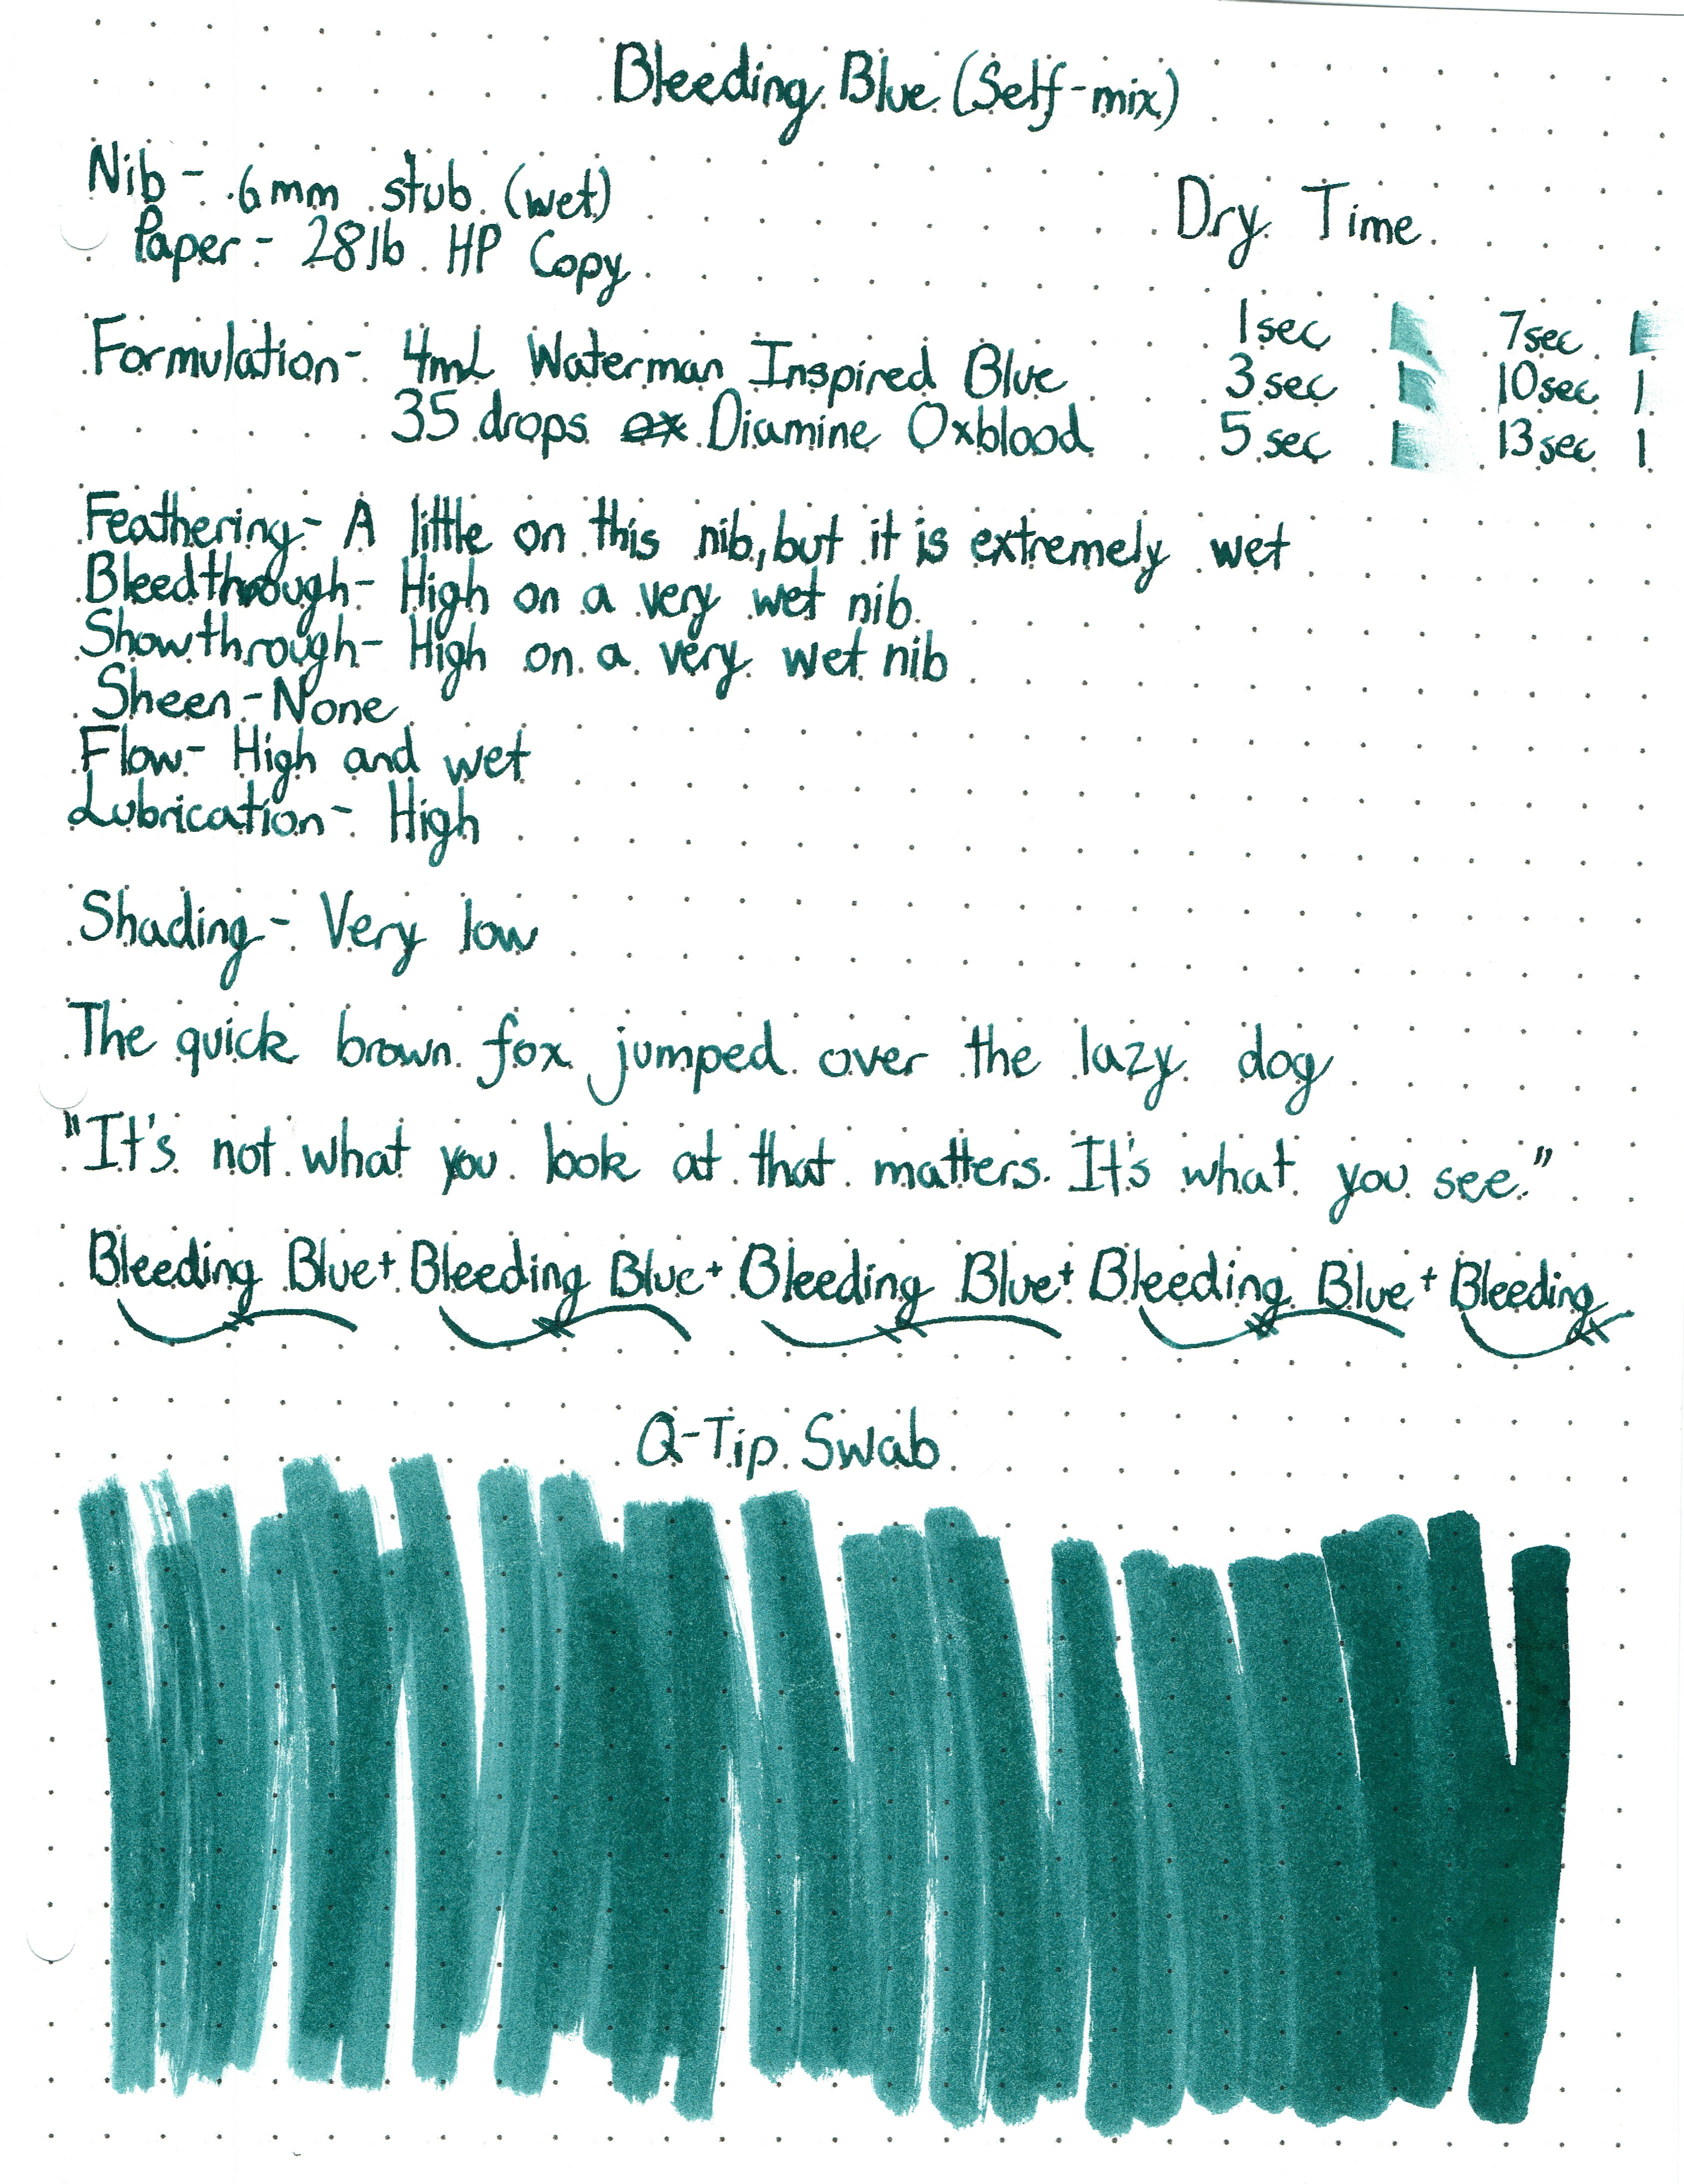 Bleeding Blue (Self-mix)
Nib - .6mm stub (wet)
Paper - 28lb HP Copy
Dry Time
1sec 7sec
3sec 10sec
5sec 13sec
Formulation - 4mL Waterman Inspired Blue
35 drops ox Diamine Oxblood
Feathering - A little on this nib, but it is extremely wet
Bleedthrough - High on a very wet nib
Showthrough - High on a very wet nib
Sheen - None
Flow - High and wet
Lubrication - High
Shading - Very low
The quick brown fox jumped over the lazy dog
"It's not what you look at that matters. It's what you see."
Bleeding Blue + Bleeding Blue + Bleeding Blue + Bleeding Blue + Bleeding
Q-Tip Swab